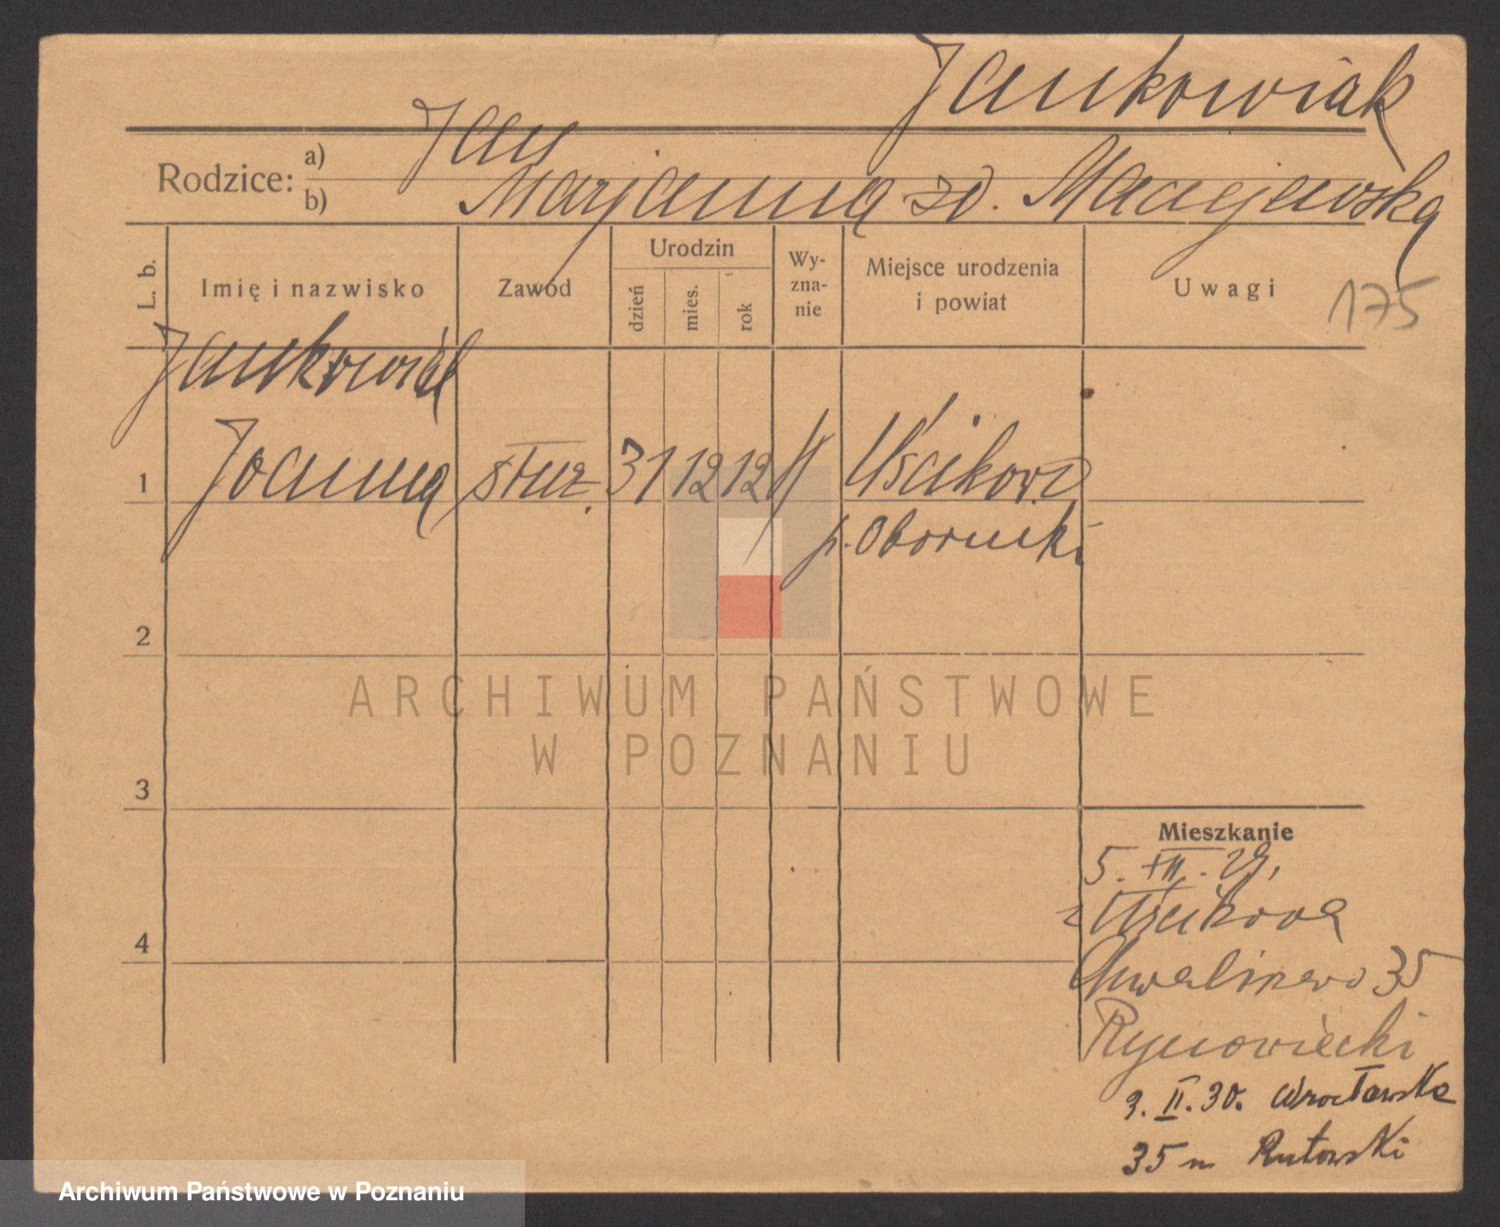 Jankowiak
Rodzice: a) Jan
b) Marjanna zd. Maciejewska
L. b.
Imię i nazwisko
Zawód
Urodzin
dzień
mies.
rok
Wy-
zna-
nie
Miejsce urodzenia
i powiat
Uwagi
175
Jankowiak
1 Joanna służ. 31 12 12 Uścikowo
p. Oborniki
2
3
4
Mieszkanie
5. XII. 29.
z Uścikowa
35
Rynowiecki
3. II. 30. Wrocławska
35 Rutowski
ARCHIWUM PAŃSTWOWE
W POZNANIU
Archiwum Państwowe w Poznaniu